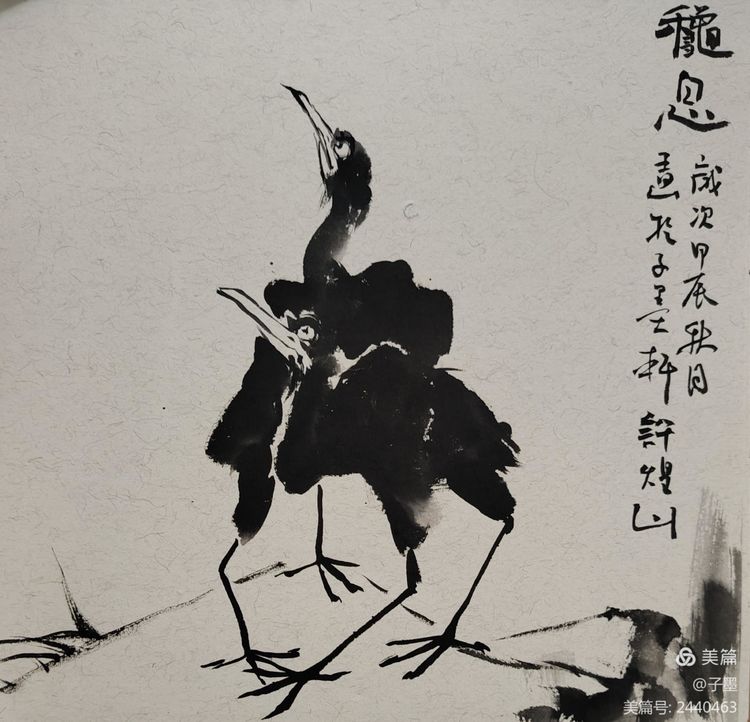 龝息
歲次甲辰秋月
畫於子墨軒許煌山
美篇
@子墨
美篇号: 2440463